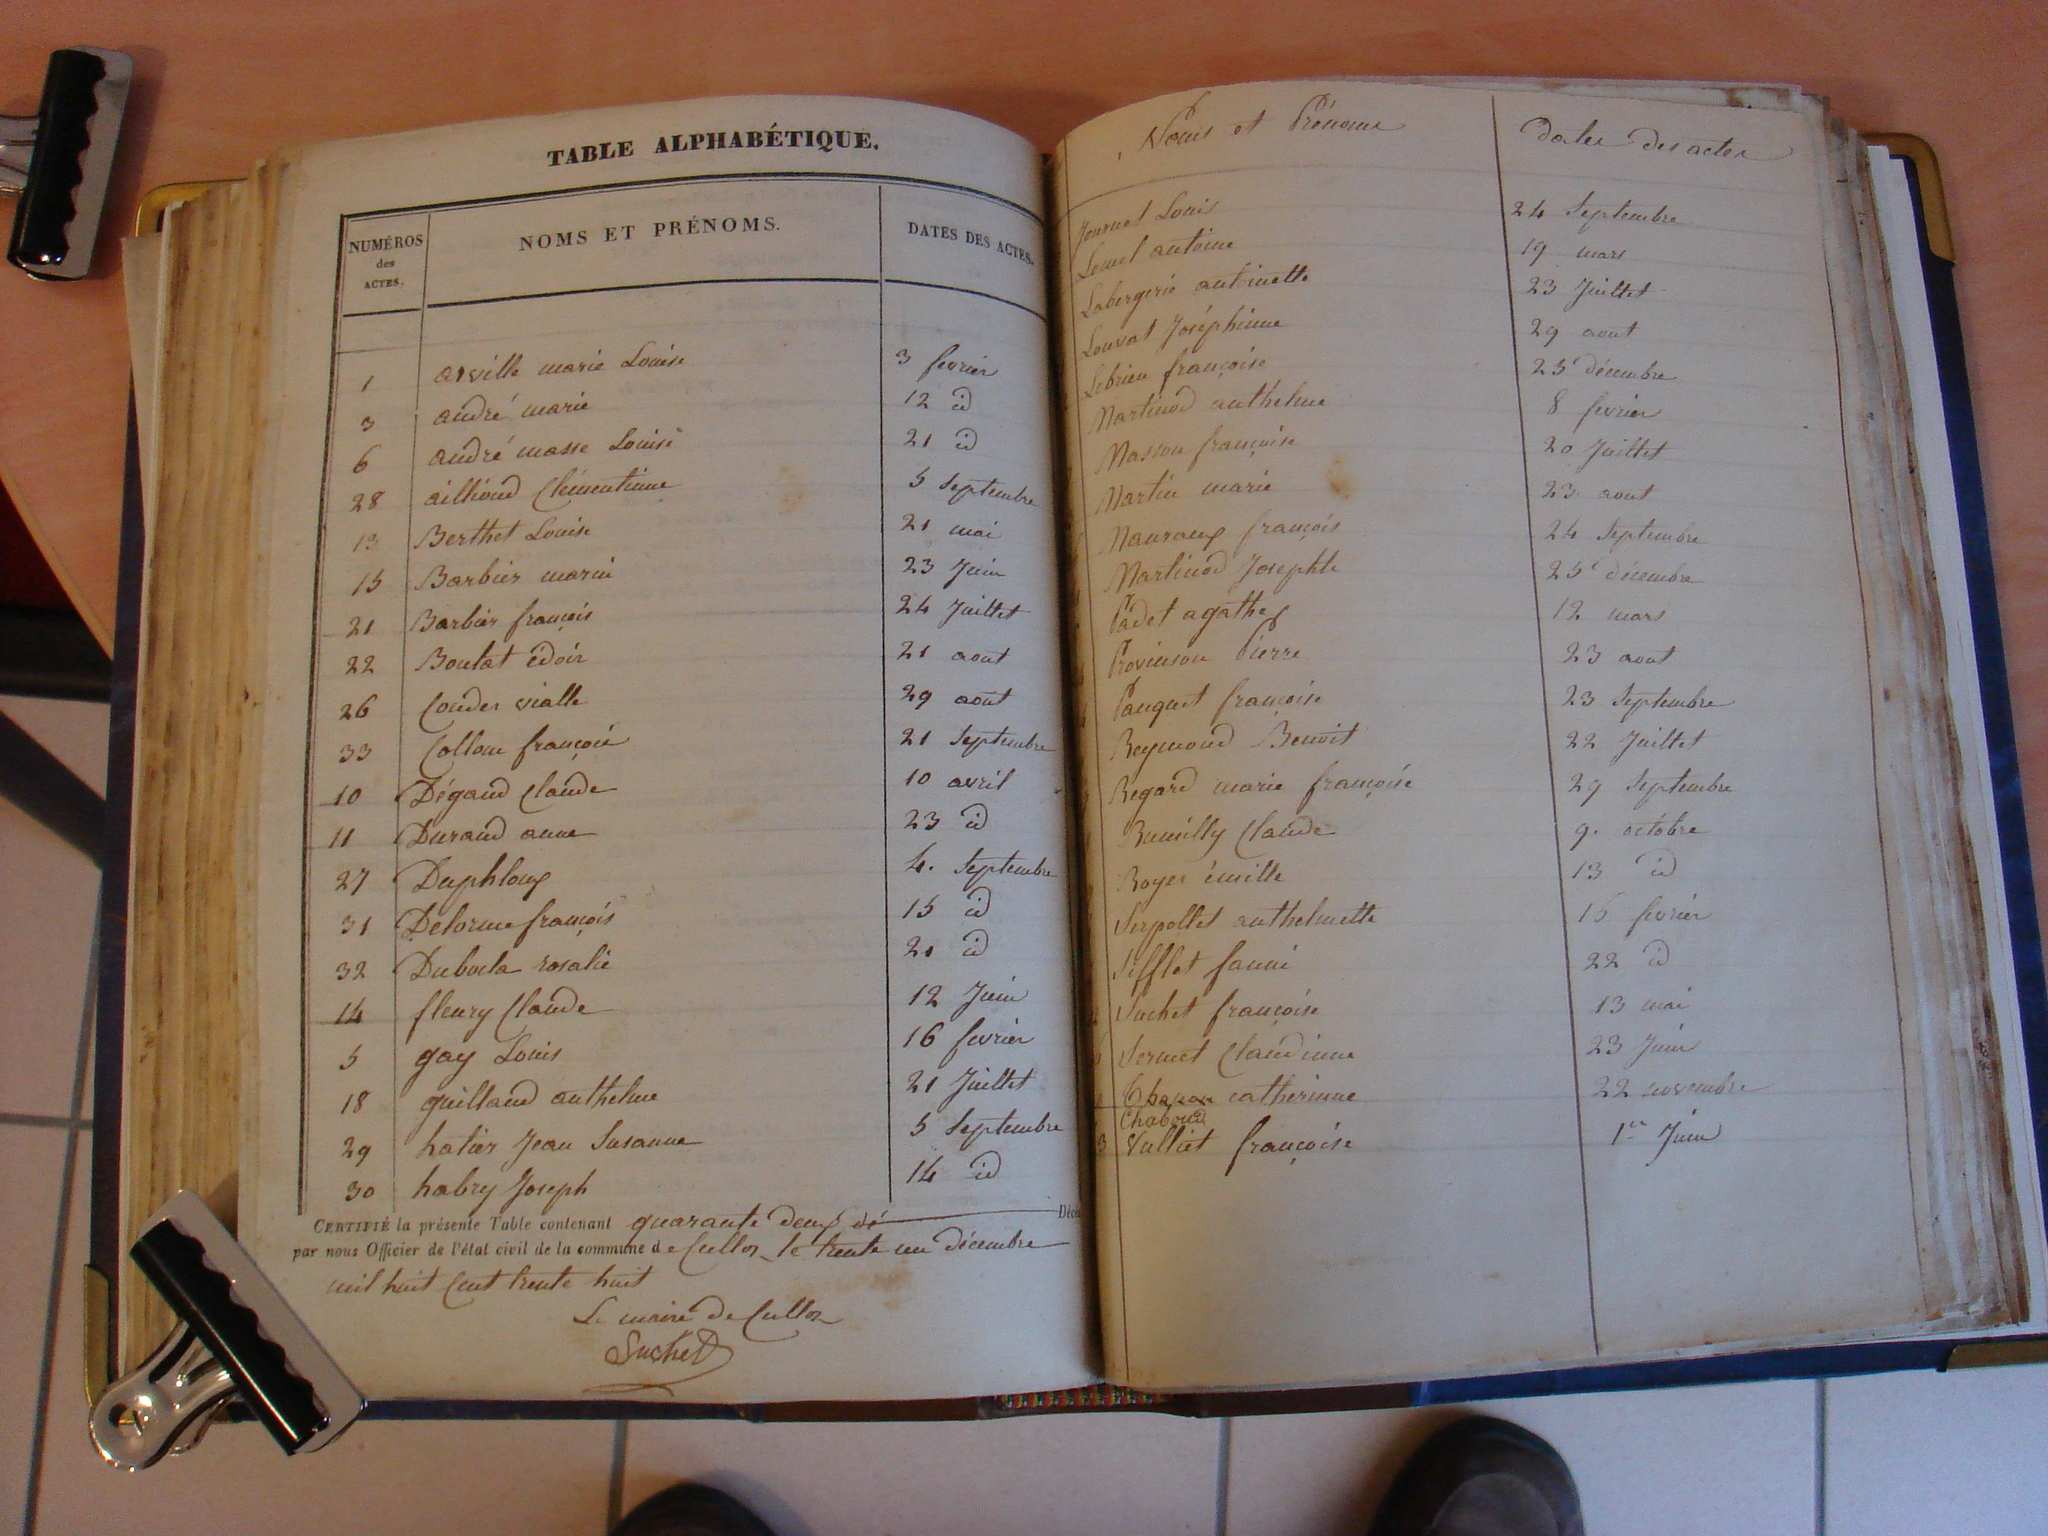 TABLE ALPHABÉTIQUE.
NUMÉROS des ACTES. NOMS ET PRÉNOMS. DATES DES ACTES.
1 arville marie Louise 3 fevrier
3 andré marie 12 id
6 andré masse Louise 21 id
28 ailloud Clémentinne 5 Septembre
13 Berthet Louise 21 mai
15 Barbier marie 23 Juin
21 Barbier françois 24 Juillet
22 Boulat édoir 21 aout
26 Couder vialle 29 aout
33 Collom françois 21 Septembre
10 Dégaud Claude 10 avril
11 Durand anne 23 id
27 Duphloux 4. Septembre
31 Delorme françois 15 id
32 Dubocla rosalie 21 id
14 fleury Claude 12 Juin
5 gay Louis 16 fevrier
18 guilland anthelme 21 Juillet
29 hatier Jean Susanne 5 Septembre
30 habry Joseph 14 id
CERTIFIÉ la présente Table contenant quarante deux dé Décè
par nous Officier de l'état civil de la commune de Culloz le trente un décembre
mil huit cent trente huit
Le maire de Culloz
Suchet
Noms et Prénoms dates des actes
Journet Louis 24 Septembre
antoine 19 mars
Labergerie antinette 23 Juillet
Louvat Joséphinne 29 aout
Lebrieu françoise 25 décembre
Martinod anthelme 8 fevrier
Masson françoise 20 Juillet
Martin marie 23 aout
françois 24 Septembre
Martinod Josephte 25 décembre
Padet agathe 12 mars
Provenson Pierre 23 aout
Pauquet françoise 23 Septembre
Reymond Benoit 22 Juillet
Regard marie françoise 29 Septembre
Rumilly Claude 9. octobre
Royer émille 13 id
Serpollet anthelmette 15 fevrier
Sifflet fanni 22 id
Suchet françoise 13 mai
3 Sermet Claudinne 23 Juin
catherinne 22 novembre
Chaboud
3 Vulliet françoise 1er Juin